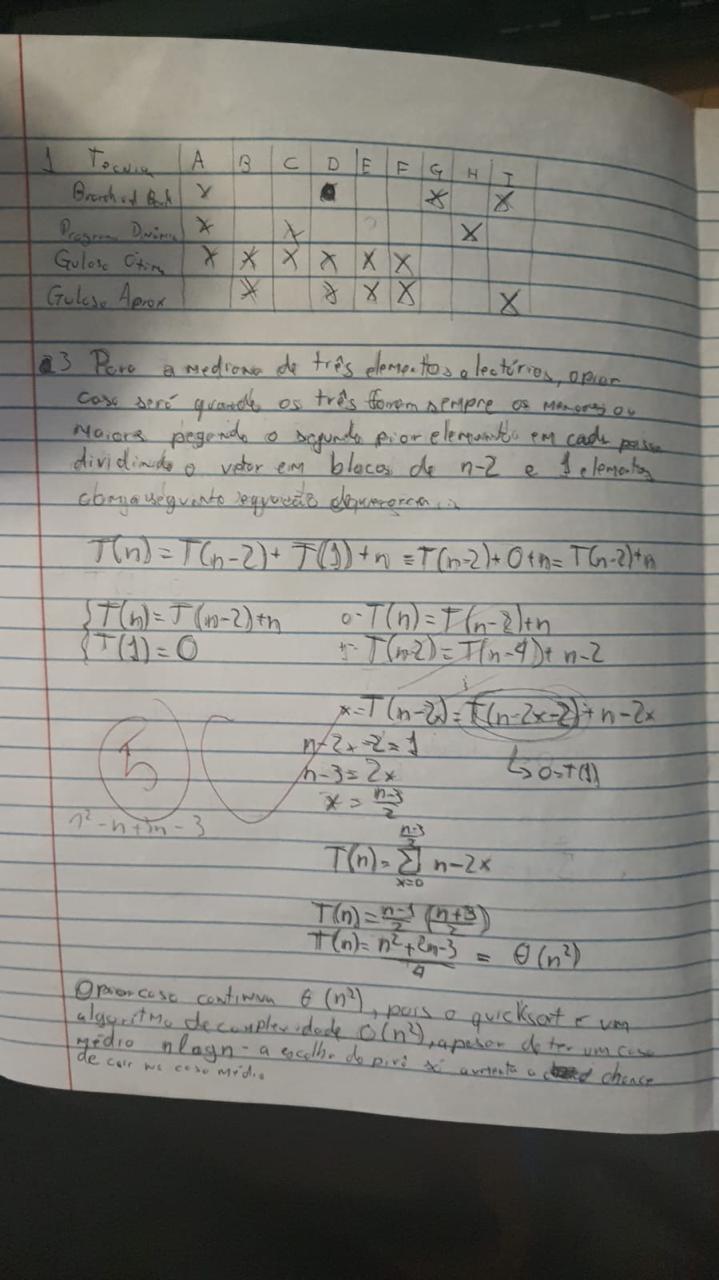 1 Tecnica A B C D E F G H I
Branch and Bound X X X
Program Dinâmica X X X
Guloso Ótimo X X X X X X
Guloso Aprox X X X X X
3 Para a mediana de três elementos aleatórios, o pior
caso será quando os três forem sempre os menores ou
maiores pegando o segundo pior elemento em cada passo
dividindo o vetor em blocos de n-2 e 1 elementos
T(n) = T(n-2) + T(1) + n = T(n-2) + 0 + n = T(n-2) + n
{ T(n) = T(n-2) + n 0- T(n) = T(n-2) + n
{ T(1) = 0 T(n-2) = T(n-4) + n-2
x- T(n-2x) = T(n-2x-2) + n-2x
n-2x-2 = 1 ↳ 0 = T(1)
n-3 = 2x
x = n-3/2
n² - n + 3n - 3
T(n) = Σ n-2x
n-3/2
x=0
T(n) = n-1/2 (n+3/2)
T(n) = n²+2n-3/4 = θ(n²)
O pior caso continua θ(n²), pois o quicksort é um
algoritmo de complexidade O(n²), apesar de ter um caso
médio nlogn - a escolha do pivô só aumenta a chance
de cair no caso médio